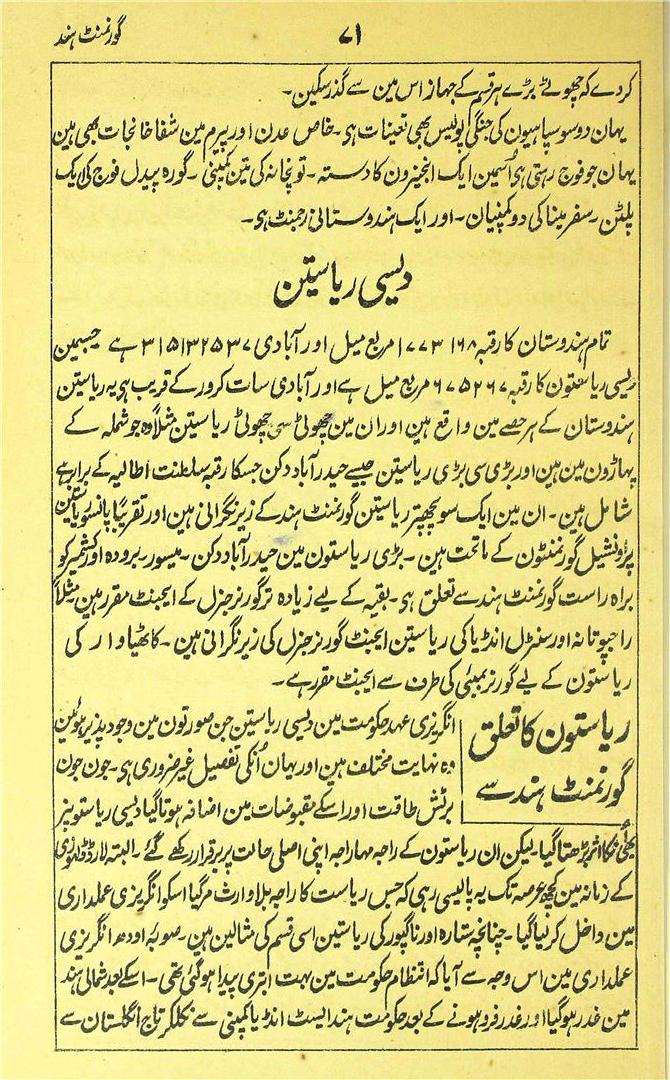 گورنمنٹ ہند
۷۱
کردے کہ چھوٹے بڑے ہر قسم کے جہاز اس مین سے گذر سکین۔
یہان دو سو سپاہیون کی جنگی پولیس بھی تعینات ہی۔ خاص عدن اور پیرم مین شفاخانجات بھی ہین
یہان جو فوج رہتی ہی اُسمین ایک انجنیرون کا دستہ۔ توپخانہ کی تین کمپنی۔ گورہ پیدل فوج کی ایک
پلٹن۔ سفر مینا کی دو کمپنیان۔ اور ایک ہندوستانی رجمنٹ ہی۔
دیسی ریاستن
تمام ہندوستان کا رقبہ ۱۷۷۳۱۶۸ مربع میل اور آبادی ۳۱۵۱۳۲۵۳۷ ہے جسمین
دیسی ریاستون کا رقبہ ۶۷۵۲۶۷ مربع میل ہے اور آبادی سات کرور کے قریب ہی یہ ریاستین
ہندوستان کے ہر حصے مین واقع ہین اور ان مین چھوٹی سی چھوٹی ریاستین مثلاً وہ جو شملہ کے
پہاڑون مین ہین اور بڑی سی بڑی ریاستین جیسے حیدرآباد دکن جسکا رقبہ سلطنت اطالیہ کے برابر ہے
شامل ہین۔ ان مین ایک سو پچھتر ریاستین گورنمنٹ ہند کے زیر نگرانی ہین اور تقریباً پانسو ریاستین
پرونشیل گورنمنٹون کے ماتحت ہین۔ بڑی ریاستون مین حیدرآباد دکن۔ میسور۔ برودہ اور کشمیر کو
براہ راست گورنمنٹ ہند سے تعلق ہی۔ بقیہ کے لیے زیادہ تر گورنر جنرل کے ایجنٹ مقرر ہین مثلاً
راجپوتانہ اور سنٹرل انڈیا کی ریاستین ایجنٹ گورنر جنرل کی زیر نگرانی ہین۔ کاٹھیاوار کی
ریاستون کے لیے گورنر بمبئی کی طرف سے ایجنٹ مقرر ہے۔
ریاستون کا تعلق
گورنمنٹ ہند سے
انگریزی عہد حکومت مین دیسی ریاستین جن صورتون مین وجود پذیر ہوئین
وہ نہایت مختلف ہین اور یہان اُنکی تفصیل غیر ضروری ہی۔ جون جون
برٹش طاقت اور اسکے مقبوضات مین اضافہ ہوتا گیا دیسی ریاستونپر
بھی اُنکا اثر بڑھتا گیا۔ لیکن ان ریاستون کے راجہ مہاراجہ اپنی اصلی حالت پر برقرار رکھے گئے۔ البتہ لارڈ ڈلہوزی
کے زمانہ مین کچھ عرصہ تک یہ پالیسی رہی کہ جس ریاست کا راجہ بلا وارث مرگیا اسکو انگریزی عملداری
مین داخل کرلیا گیا۔ چنانچہ ستارہ اور ناگپور کی ریاستین اسی قسم کی مثالین ہین۔ صوبہ اودھ انگریزی
عملداری مین اس وجہ سے آیا کہ انتظام حکومت مین بہت ابتری پیدا ہوگئی تھی۔ اسکے بعد شمالی ہند
مین غدر ہوگیا اور غدر فرو ہونے کے بعد حکومت ہند ایسٹ انڈیا کمپنی سے نکلکر تاج انگلستان سے